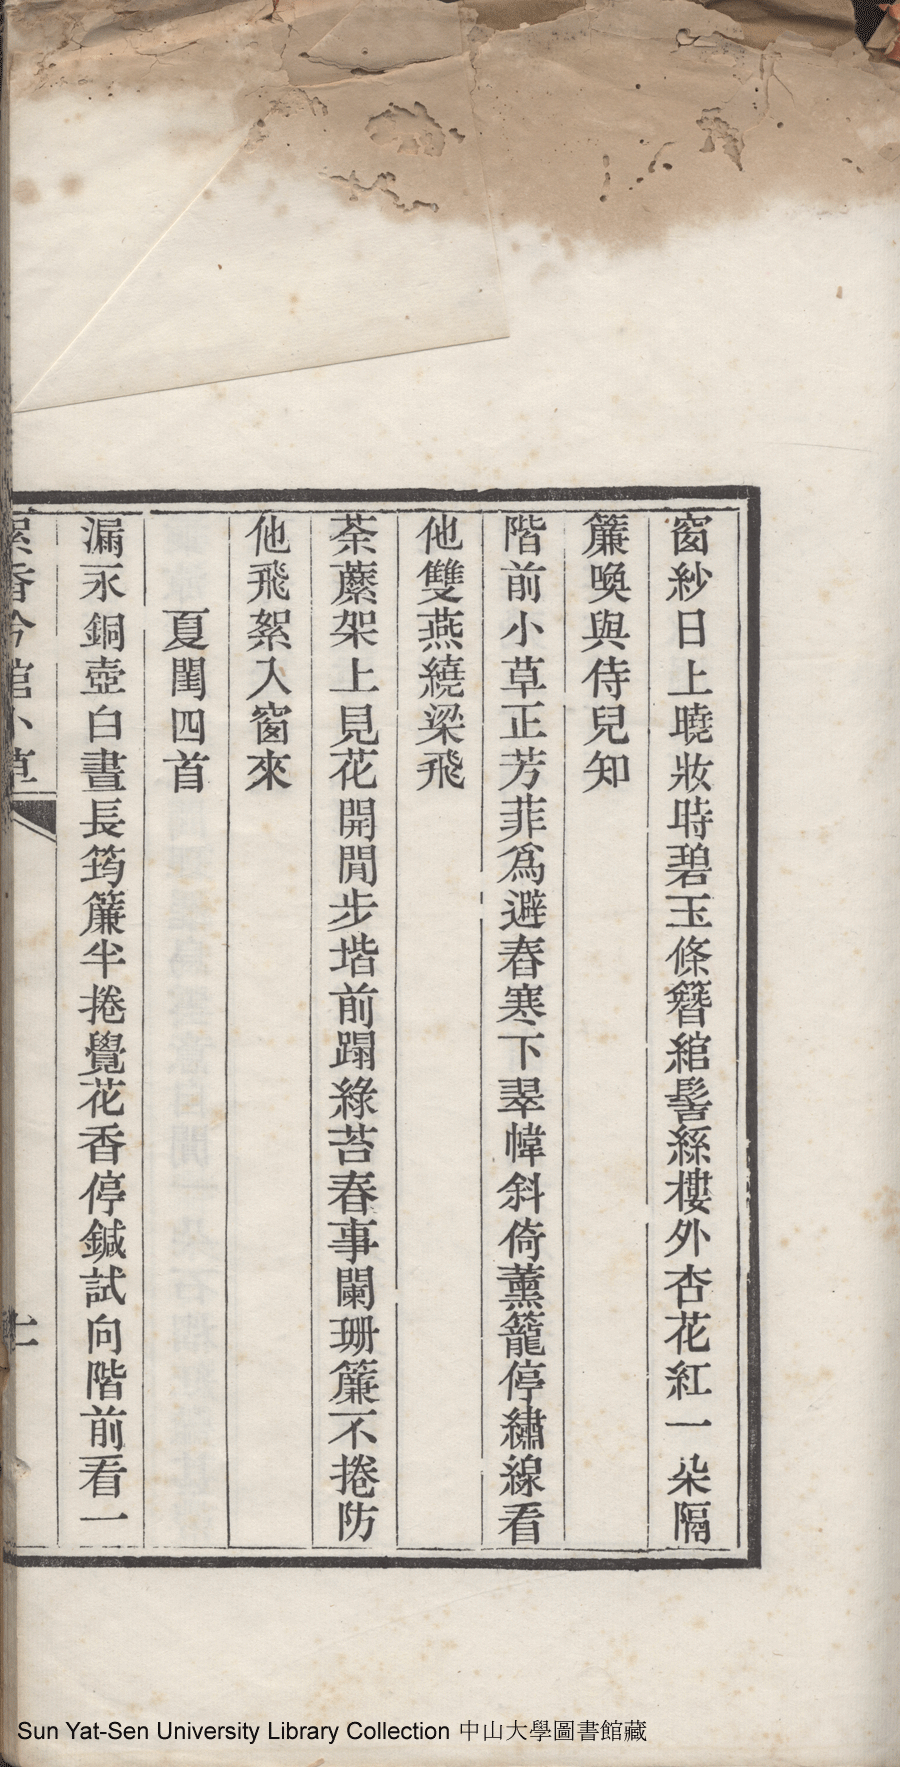 窗紗日上曉妝時碧玉條簪綰髻絲樓外杏花紅一朵隔
簾喚與侍兒知
階前小草正芳菲爲避春寒下翠幃斜倚薰籠停繡線看
他雙燕繞梁飛
荼蘼架上見花開閒步堦前蹋綠苔春事闌珊簾不捲防
他飛絮入窗來
夏閨四首
漏永銅壺白晝長筠簾半捲覺花香停鍼試向階前看一
香吟館小草
Sun Yat-Sen University Library Collection 中山大學圖書館藏